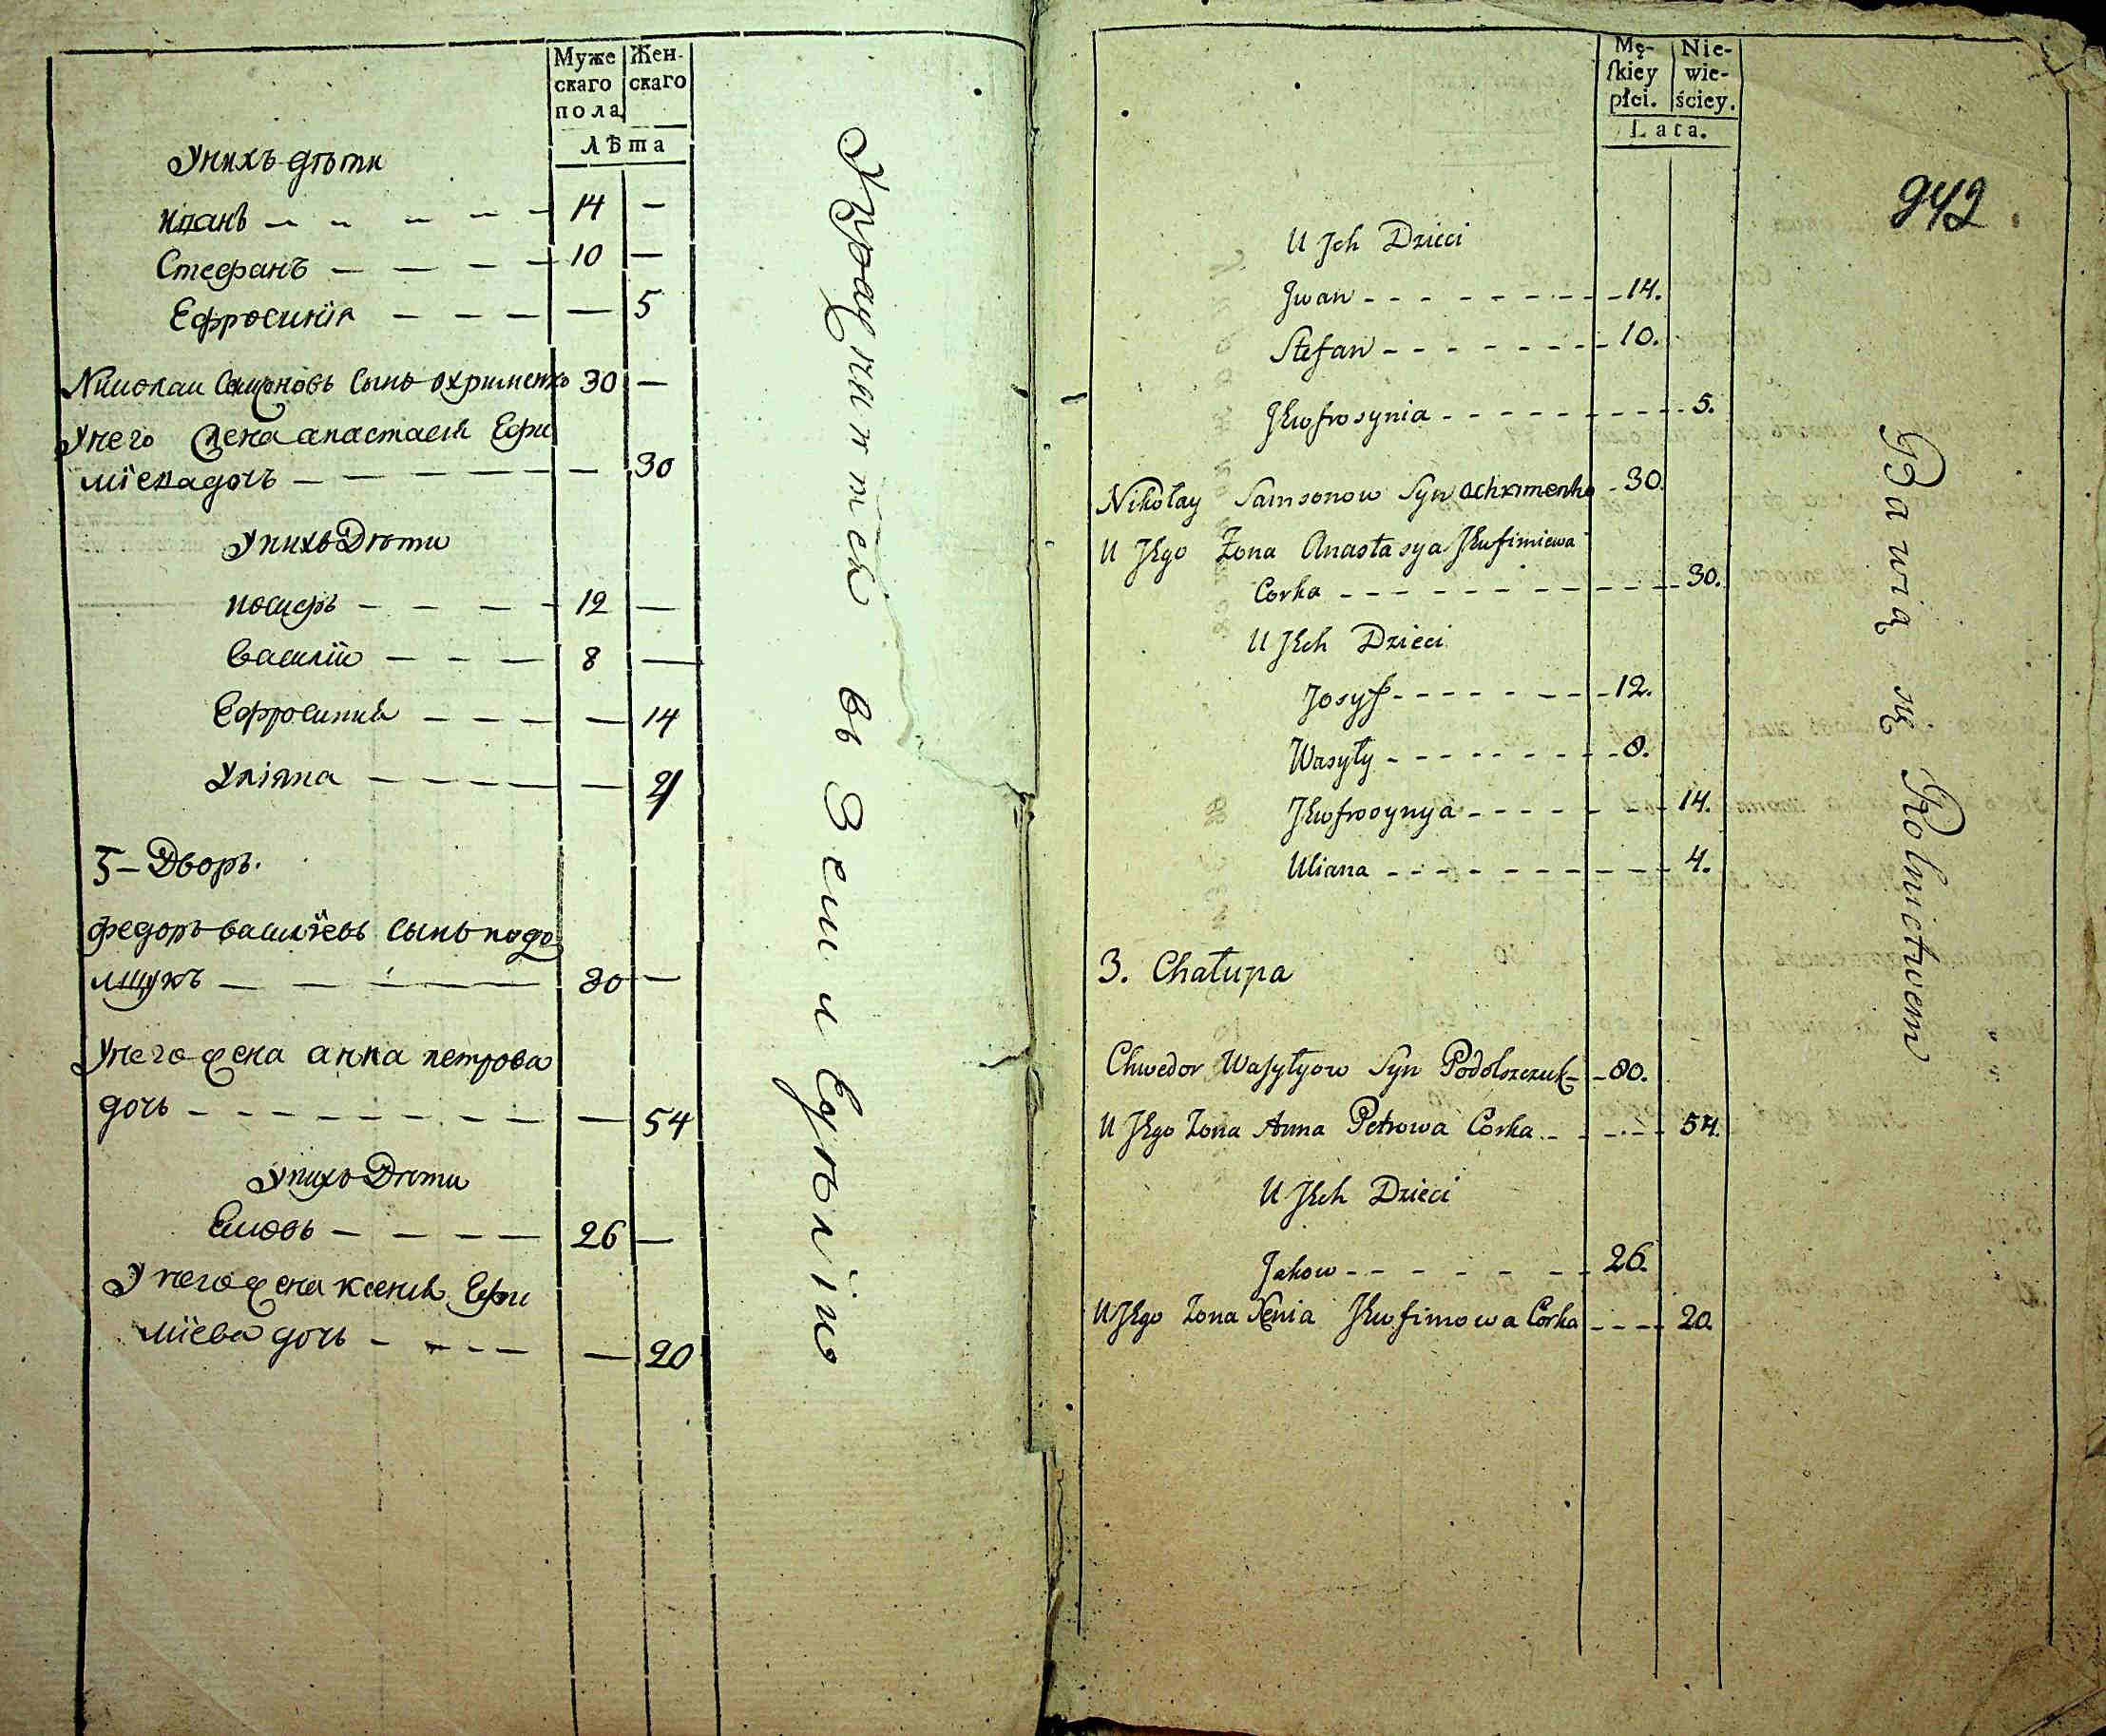 Муже
скаго
пола
Жен-
скаго
лѣта
Унихъ дѣти
иванъ — — — — 14 —
Стефанъ — — — — 10 —
Ефросинія — — — — 5
Николаи Самсоновъ сынъ охрименко 30 —
Унего жена анастасія Ефи
міева дочъ — — — — 30
Унихъ Дѣти
иосифъ — — — — 12 —
василій — — — 8 —
Ефросинія — — — — 14
Уліяна — — — — — 4
3 — Дворъ.
федоръ василіевъ сынъ подо
лщукъ — — — — 80 —
Унего жена анна петрова
дочь — — — — — — — — — 54
Унихъ Дѣти
Яковъ — — — — 26 —
Унего жена ксенія Ефи
міева дочь — — — — — 20
Упражняется въ Земледѣліи
Mę-
ſkiey
płci.
Nie-
wie-
ściey.
Lata.
942
U Jch Dzieci
Jwan - - - - - - - - - 14.
Stefan - - - - - - - - - 10.
Jewfrosynia - - - - - - - - - 5.
Nikołay Samsonow Syn Ochrimenko - 30.
U Jego Żona Anastasya Jewfimiewa
Corka - - - - - - - - - - - - 30.
U Jech Dzieci
Josyf - - - - - - - - 12.
Wasyły - - - - - - - - - 8.
Jewfrosynya - - - - - - - 14.
Uliana - - - - - - - - - - - 4.
3. Chałupa
Chwedor Wasyłyow Syn Podolszczuk - - 80.
U Jego Zona Anna Petrowa Corka - - - - - 54.
U Jech Dzieci
Jakow - - - - - - - - 26.
U Jego Zona Xenia Jewfimowa Corka - - - - 20.
Bawią się Rolnictwem